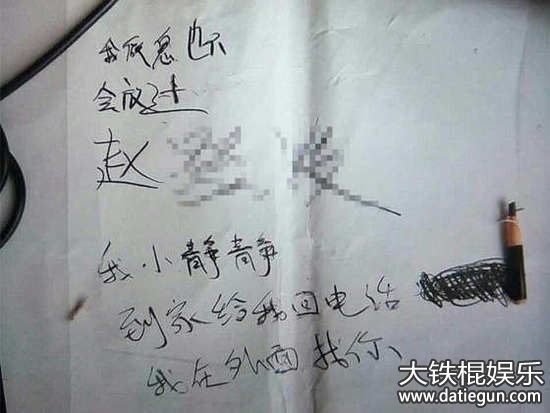 我 也不
会放过
赵
我小静静
到家给我回电话
我在外面找你
大铁棍娱乐
www.datiegun.com